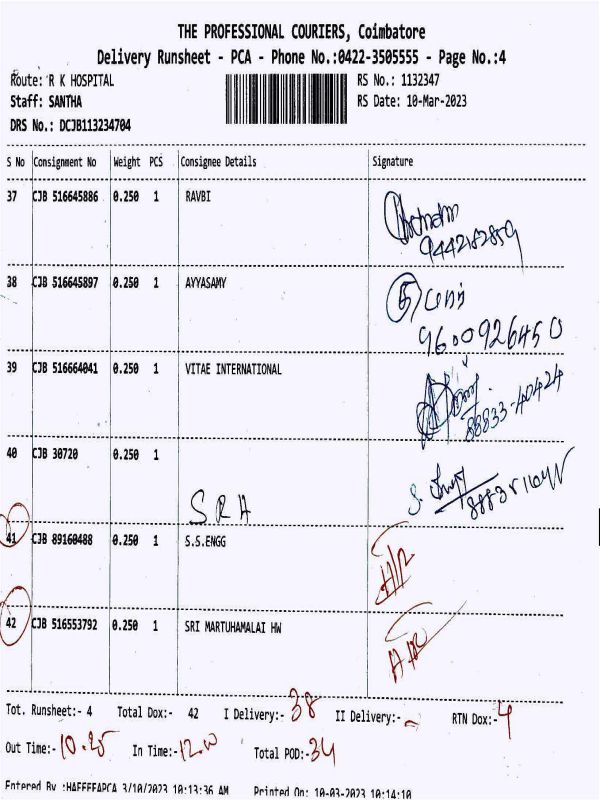 THE PROFESSIONAL COURIERS, Coimbatore
Delivery Runsheet - PCA - Phone No.:0422-3505555 - Page No.:4
Route: R K HOSPITAL RS No.: 1132347
Staff: SANTHA RS Date: 10-Mar-2023
DRS No.: DCJB113234704
S No Consignment No Weight PCS Consignee Details Signature
37 CJB 516645886 0.250 1 RAVBI
38 CJB 516645897 0.250 1 AYYASAMY
9600926450
39 CJB 516664041 0.250 1 VITAE INTERNATIONAL
88833-40424
40 CJB 30720 0.250 1
SRH
41 CJB 89160488 0.250 1 S.S.ENGG
42 CJB 516553792 0.250 1 SRI MARTUHAMALAI HW
Tot. Runsheet:- 4 Total Dox:- 42 I Delivery:- 38 II Delivery:- - RTN Dox:- 4
Out Time:- 10.25 In Time:- Total POD:- 34
Entered By :HAFEEFAPCA 3/10/2023 10:13:36 AM Printed On: 10-03-2023 10:14:10